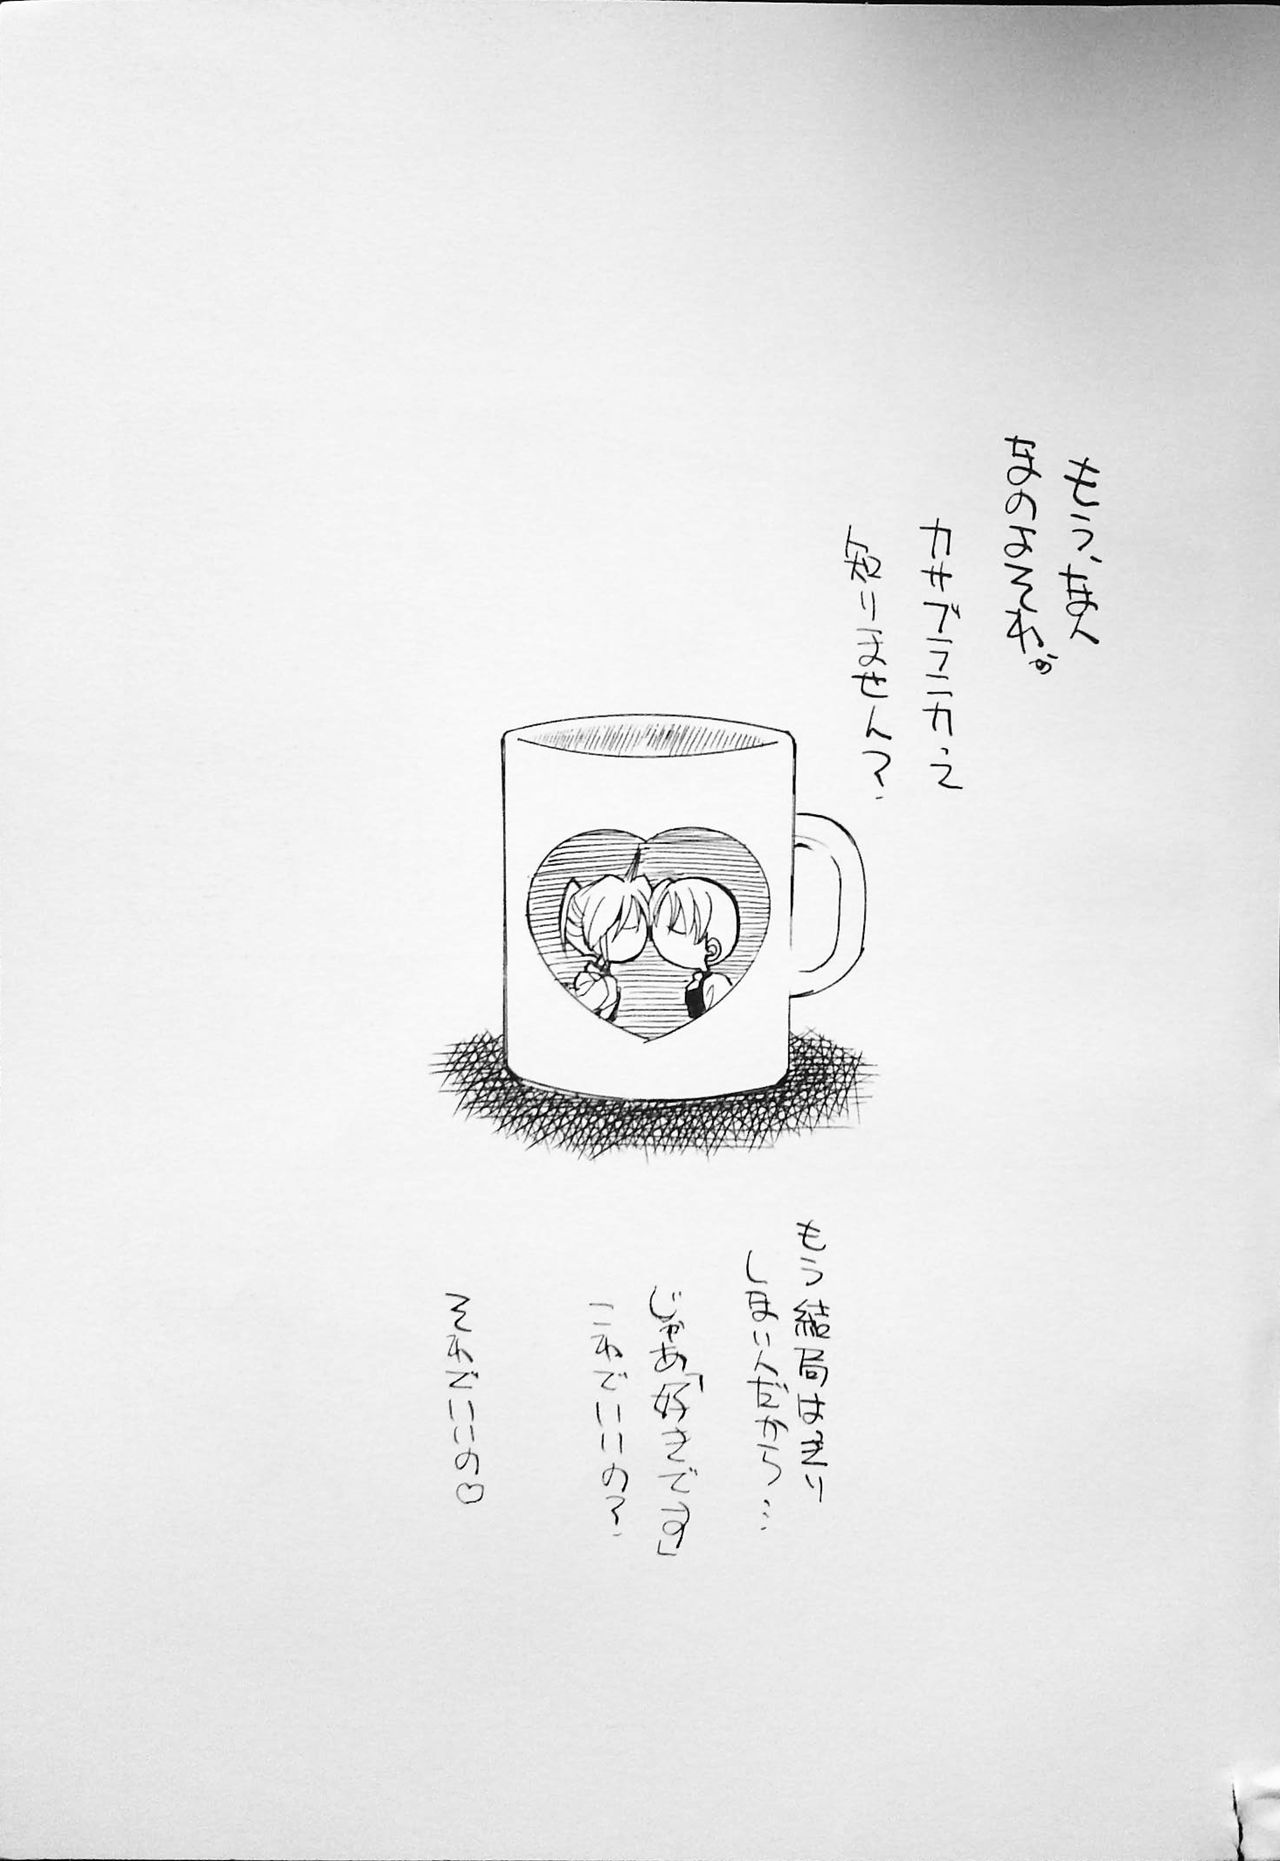 もう、なん
なのよそれぇ
カサブランカって
知りません?
もう結局はっきり
しまいんだから…
じゃあ「好きです」
これでいいの?
それでいいの♡